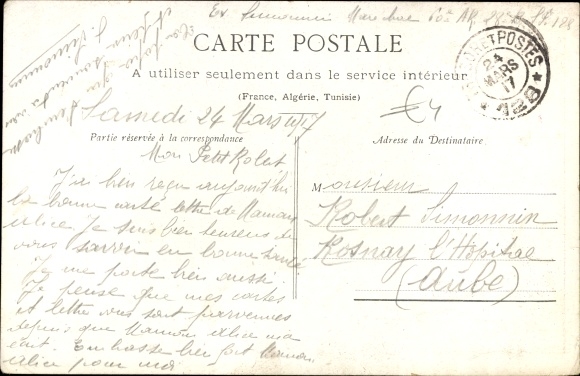 Ex. Simonnin Marechal 60e AR. 28e Bie SP. 128
CARTE POSTALE
A utiliser seulement dans le service intérieur
(France, Algérie, Tunisie)
Samedi 24 Mars 1917
€4
Partie réservée à la correspondance
Adresse du Destinataire
ET POSTES
24
MARS
17
128
Mon Petit Robert
J'ai bien reçu aujourd'hui
la bonne carte lettre de Maman
alice Je suis bien heureux de
vous savoir en bonne santé
Je me porte bien aussi
Je pense que mes cartes
et lettre vous sont parvenues
depuis que Maman alice m'a
écrit. Embrasse bien fort Maman
alice pour moi
Monsieur
Robert Simonnin
Rosnay l'Hopital
(Aube)
Ton Papa qui
souvent a vous
S. Simonnin